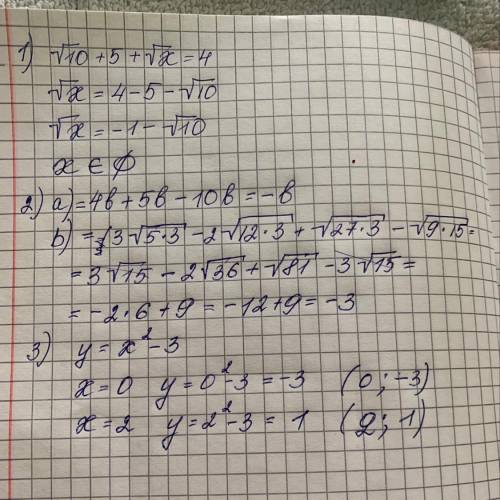 1) √10 + 5 + √x = 4
√x = 4 - 5 - √10
√x = -1 - √10
x ∈ ∅
2) a) = 4b + 5b - 10b = -b
b) = 3√(5·3) - 2√(12·3) + √(27·3) - √(9·15) =
= 3√15 - 2√36 + √81 - 3√15 =
= -2·6 + 9 = -12 + 9 = -3
3) y = x² - 3
x = 0 y = 0² - 3 = -3 (0; -3)
x = 2 y = 2² - 3 = 1 (2; 1)